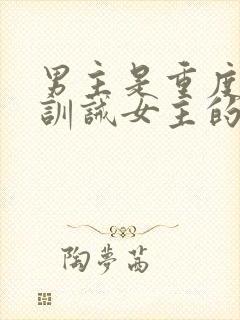 男主是重度
訓誡女主的
陶夢茜